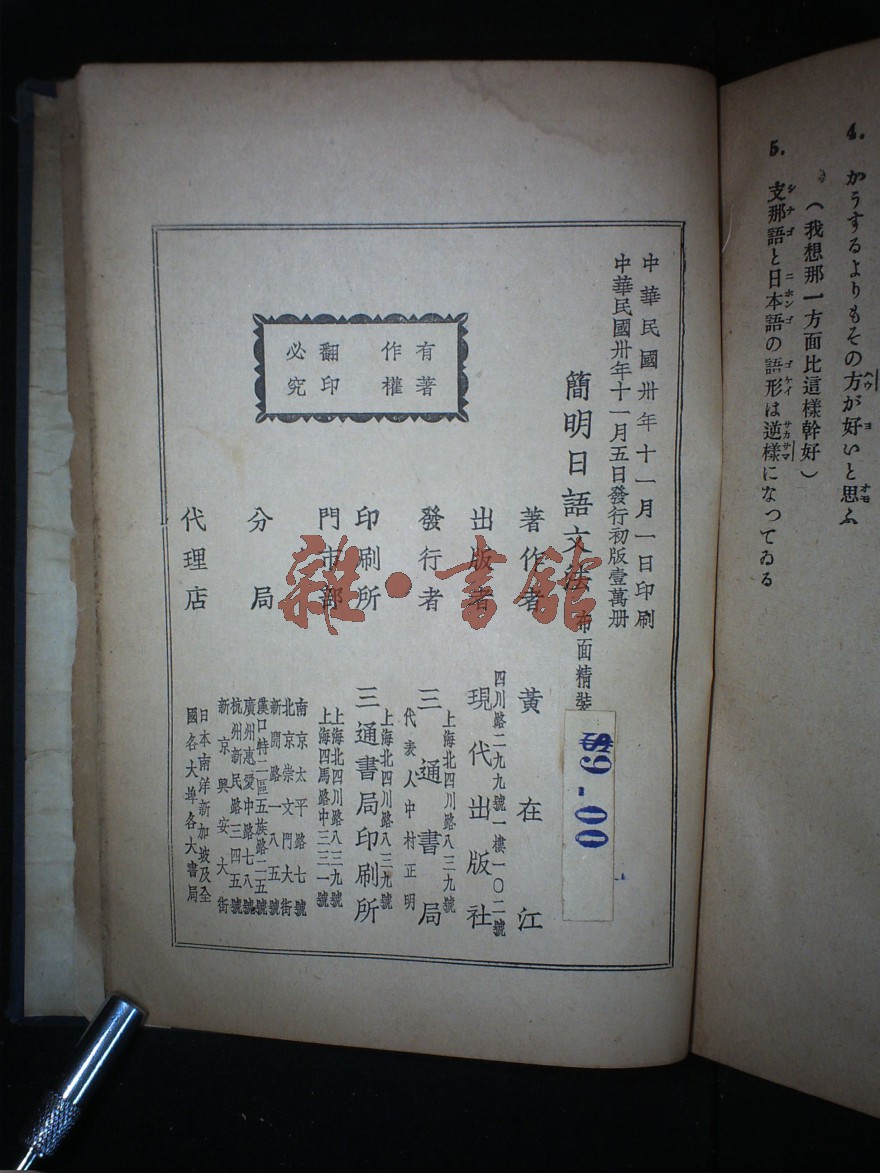 4. かうするよりもその方が好いと思ふ
（我想那一方面比這樣幹好）
5. 支那語と日本語の語形は逆樣になつてゐる
中華民國卅年十一月一日印刷
中華民國卅年十一月五日發行初版壹萬册
簡明日語文法 布面精裝
$9.00
有著作權
翻印必究
著作者 黃在江
四川路二九九號一樓一〇二號
出版者 現代出版社
上海北四川路八三九號
發行者 三通書局
代表人中村正明
上海北四川路八三九號
印刷所 三通書局印刷所
上海北四川路八三九號
門市部 上海四馬路中三三一號
南京太平路七號
北京崇文門大街
分局 新開路一八五號
漢口特二區五族路二五號
廣州惠愛中路七八號
杭州新民路三四五號
新京興安大街
代理店 日本南洋新加坡及全
國各大埠各大書局
雜·書館